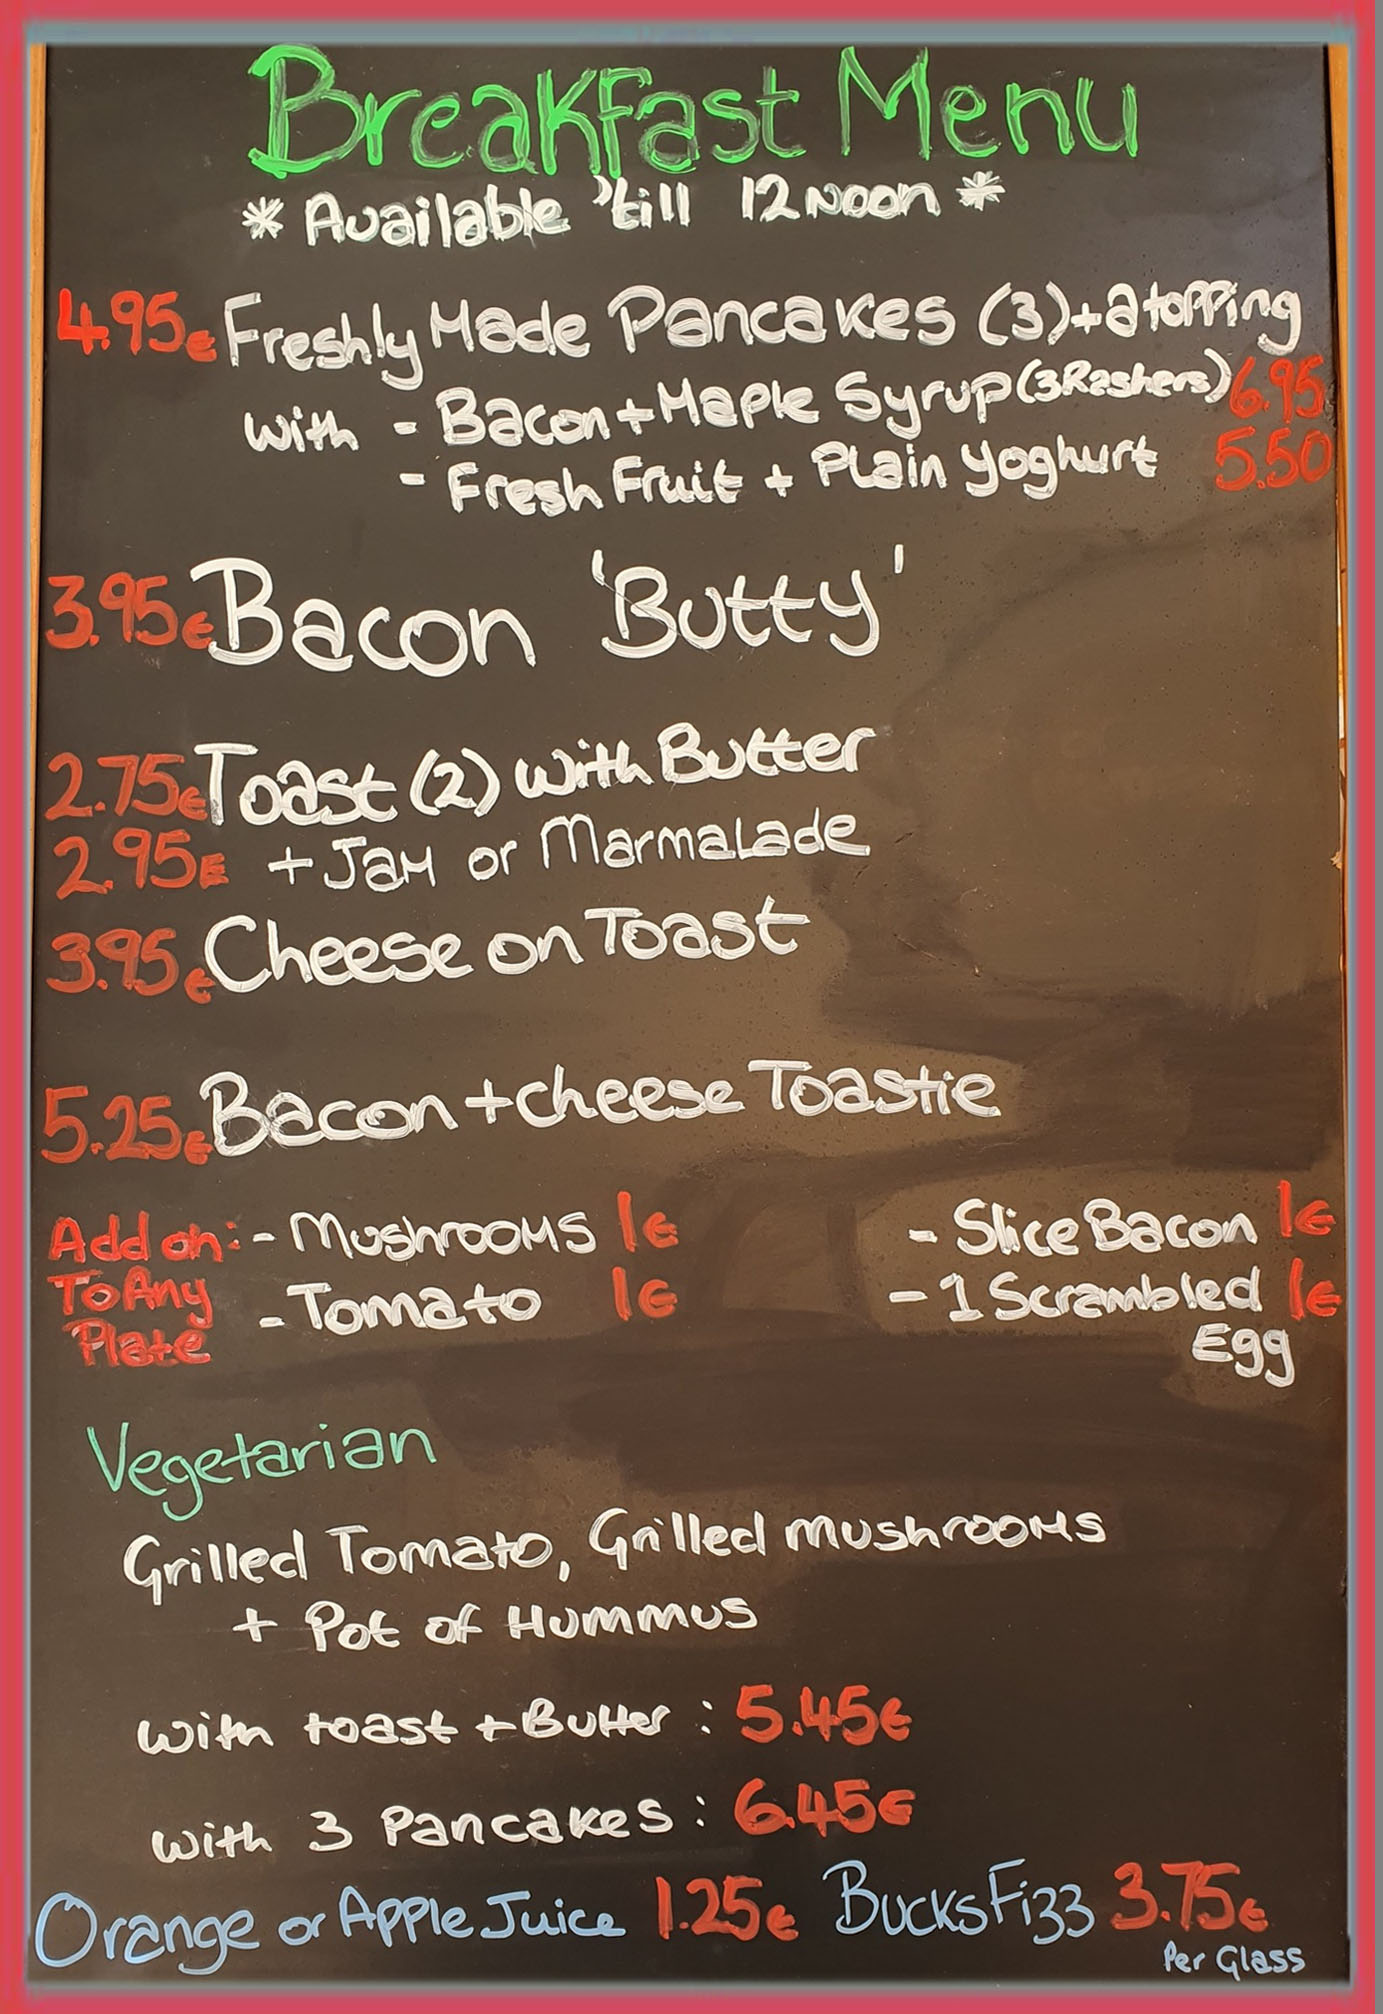 Breakfast Menu
* Available 'till 12 Noon *
4.95€ Freshly Made Pancakes (3) + a topping
with - Bacon + Maple Syrup (3 Rashers) 6.95
- Fresh Fruit + Plain Yoghurt 5.50
3.95€ Bacon 'Butty'
2.75€ Toast (2) with Butter
2.95€ + Jam or Marmalade
3.95€ Cheese on Toast
5.25€ Bacon + cheese Toastie
Add on: - Mushrooms 1€ - Slice Bacon 1€
To Any - Tomato 1€ - 1 Scrambled 1€
Plate Egg
Vegetarian
Grilled Tomato, Grilled mushrooms
+ Pot of Hummus
with toast + Butter : 5.45€
with 3 Pancakes : 6.45€
Orange or Apple Juice 1.25€ Bucks Fizz 3.75€
Per Glass